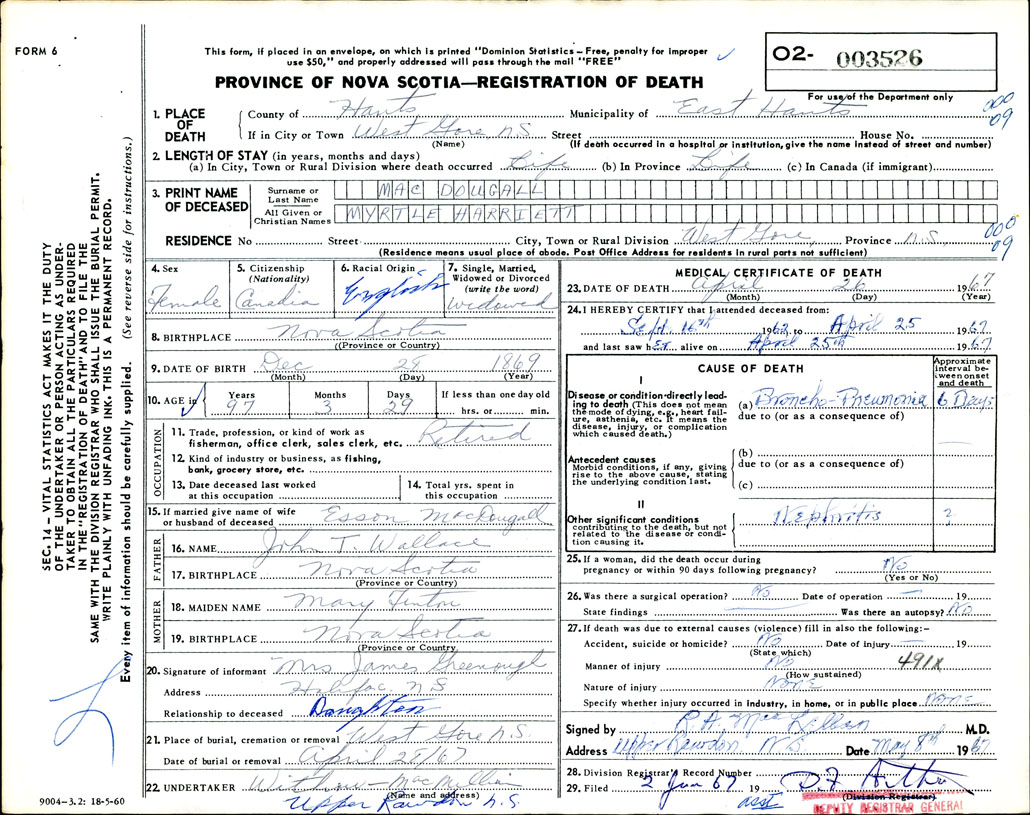 FORM 6
This form, if placed in an envelope, on which is printed "Dominion Statistics – Free, penalty for improper
use $50," and properly addressed will pass through the mail "FREE"
O2- 003526
For use of the Department only
PROVINCE OF NOVA SCOTIA—REGISTRATION OF DEATH
SEC. 14 – VITAL STATISTICS ACT MAKES IT THE DUTY
OF THE UNDERTAKER OR PERSON ACTING AS UNDER-
TAKER TO OBTAIN ALL THE PARTICULARS REQUIRED
IN THE "REGISTRATION OF DEATH" AND TO FILE THE
SAME WITH THE DIVISION REGISTRAR WHO SHALL ISSUE THE BURIAL PERMIT.
WRITE PLAINLY WITH UNFADING INK. THIS IS A PERMANENT RECORD.
Every item of information should be carefully supplied. (See reverse side for instructions.)
1. PLACE OF DEATH
County of Hants Municipality of East Hants
000
09
If in City or Town West Gore N.S. Street House No.
(Name) (If death occurred in a hospital or institution, give the name instead of street and number)
2. LENGTH OF STAY (in years, months and days)
(a) In City, Town or Rural Division where death occurred Life (b) In Province Life (c) In Canada (if immigrant)
3. PRINT NAME OF DECEASED
Surname or Last Name MAC DOUGALL
All Given or Christian Names MYRTLE HARRIETT
RESIDENCE No Street City, Town or Rural Division West Gore, Province N.S.
000
09
(Residence means usual place of abode. Post Office Address for residents in rural parts not sufficient)
4. Sex Female
5. Citizenship (Nationality) Canadian
6. Racial Origin English
7. Single, Married, Widowed or Divorced (write the word) Widowed
8. BIRTHPLACE Nova Scotia
((Province or Country)
9. DATE OF BIRTH Dec 28 1869
(Month) (Day) (Year)
10. AGE in Years 97 Months 3 Days 29 If less than one day old hrs. or min.
OCCUPATION
11. Trade, profession, or kind of work as
fisherman, office clerk, sales clerk, etc. Retired
12. Kind of industry or business, as fishing,
bank, grocery store, etc.
13. Date deceased last worked
at this occupation
14. Total yrs. spent in
this occupation
15. If married give name of wife
or husband of deceased Esson MacDougall
FATHER
16. NAME John T. Wallace
17. BIRTHPLACE Nova Scotia
(Province or Country)
MOTHER
18. MAIDEN NAME Mary Fenton
19. BIRTHPLACE Nova Scotia
(Province or Country
20. Signature of informant Mrs. James Greenough
Address Halifax, N S
Relationship to deceased Daughter
21. Place of burial, cremation or removal West Gore N.S.
Date of burial or removal April 28/67
22. UNDERTAKER
(Name and address)
Upper Rawdon N.S.
9004–3.2: 18-5-60
MEDICAL CERTIFICATE OF DEATH
23. DATE OF DEATH April 26 1967
(Month) (Day) (Year)
24. I HEREBY CERTIFY that I attended deceased from:
Sept. 16th 1962 to April 25 1967
and last saw her alive on April 25th 1967
CAUSE OF DEATH
Approximate
interval be-
tween onset
and death
I
Disease or condition directly lead-
ing to death (This does not mean
the mode of dying, e.g., heart fail-
ure, asthenia, etc. It means the
disease, injury, or complication
which caused death.)
(a) Broncho-Pneumonia 6 Days
due to (or as a consequence of)
Antecedent causes
Morbid conditions, if any, giving
rise to the above cause, stating
the underlying condition last.
(b)
due to (or as a consequence of)
(c)
II
Other significant conditions
contributing to the death, but not
related to the disease or condi-
tion causing it.
Nephritis ?
25. If a woman, did the death occur during
pregnancy or within 90 days following pregnancy? No
(Yes or No)
26. Was there a surgical operation? No Date of operation — 19
State findings Was there an autopsy? No
27. If death was due to external causes (violence) fill in also the following:–
Accident, suicide or homicide? No Date of injury 19
(State which)
Manner of injury No 491X
(How sustained)
Nature of injury None
Specify whether injury occurred in industry, in home, or in public place None
Signed by R.A. MacLellan M.D.
Address Upper Rawdon NS Date May 8th 1967
28. Division Registrar's Record Number
29. Filed 2 Jun 67 19
(Division Registrar)
asst
DEPUTY REGISTRAR GENERAL